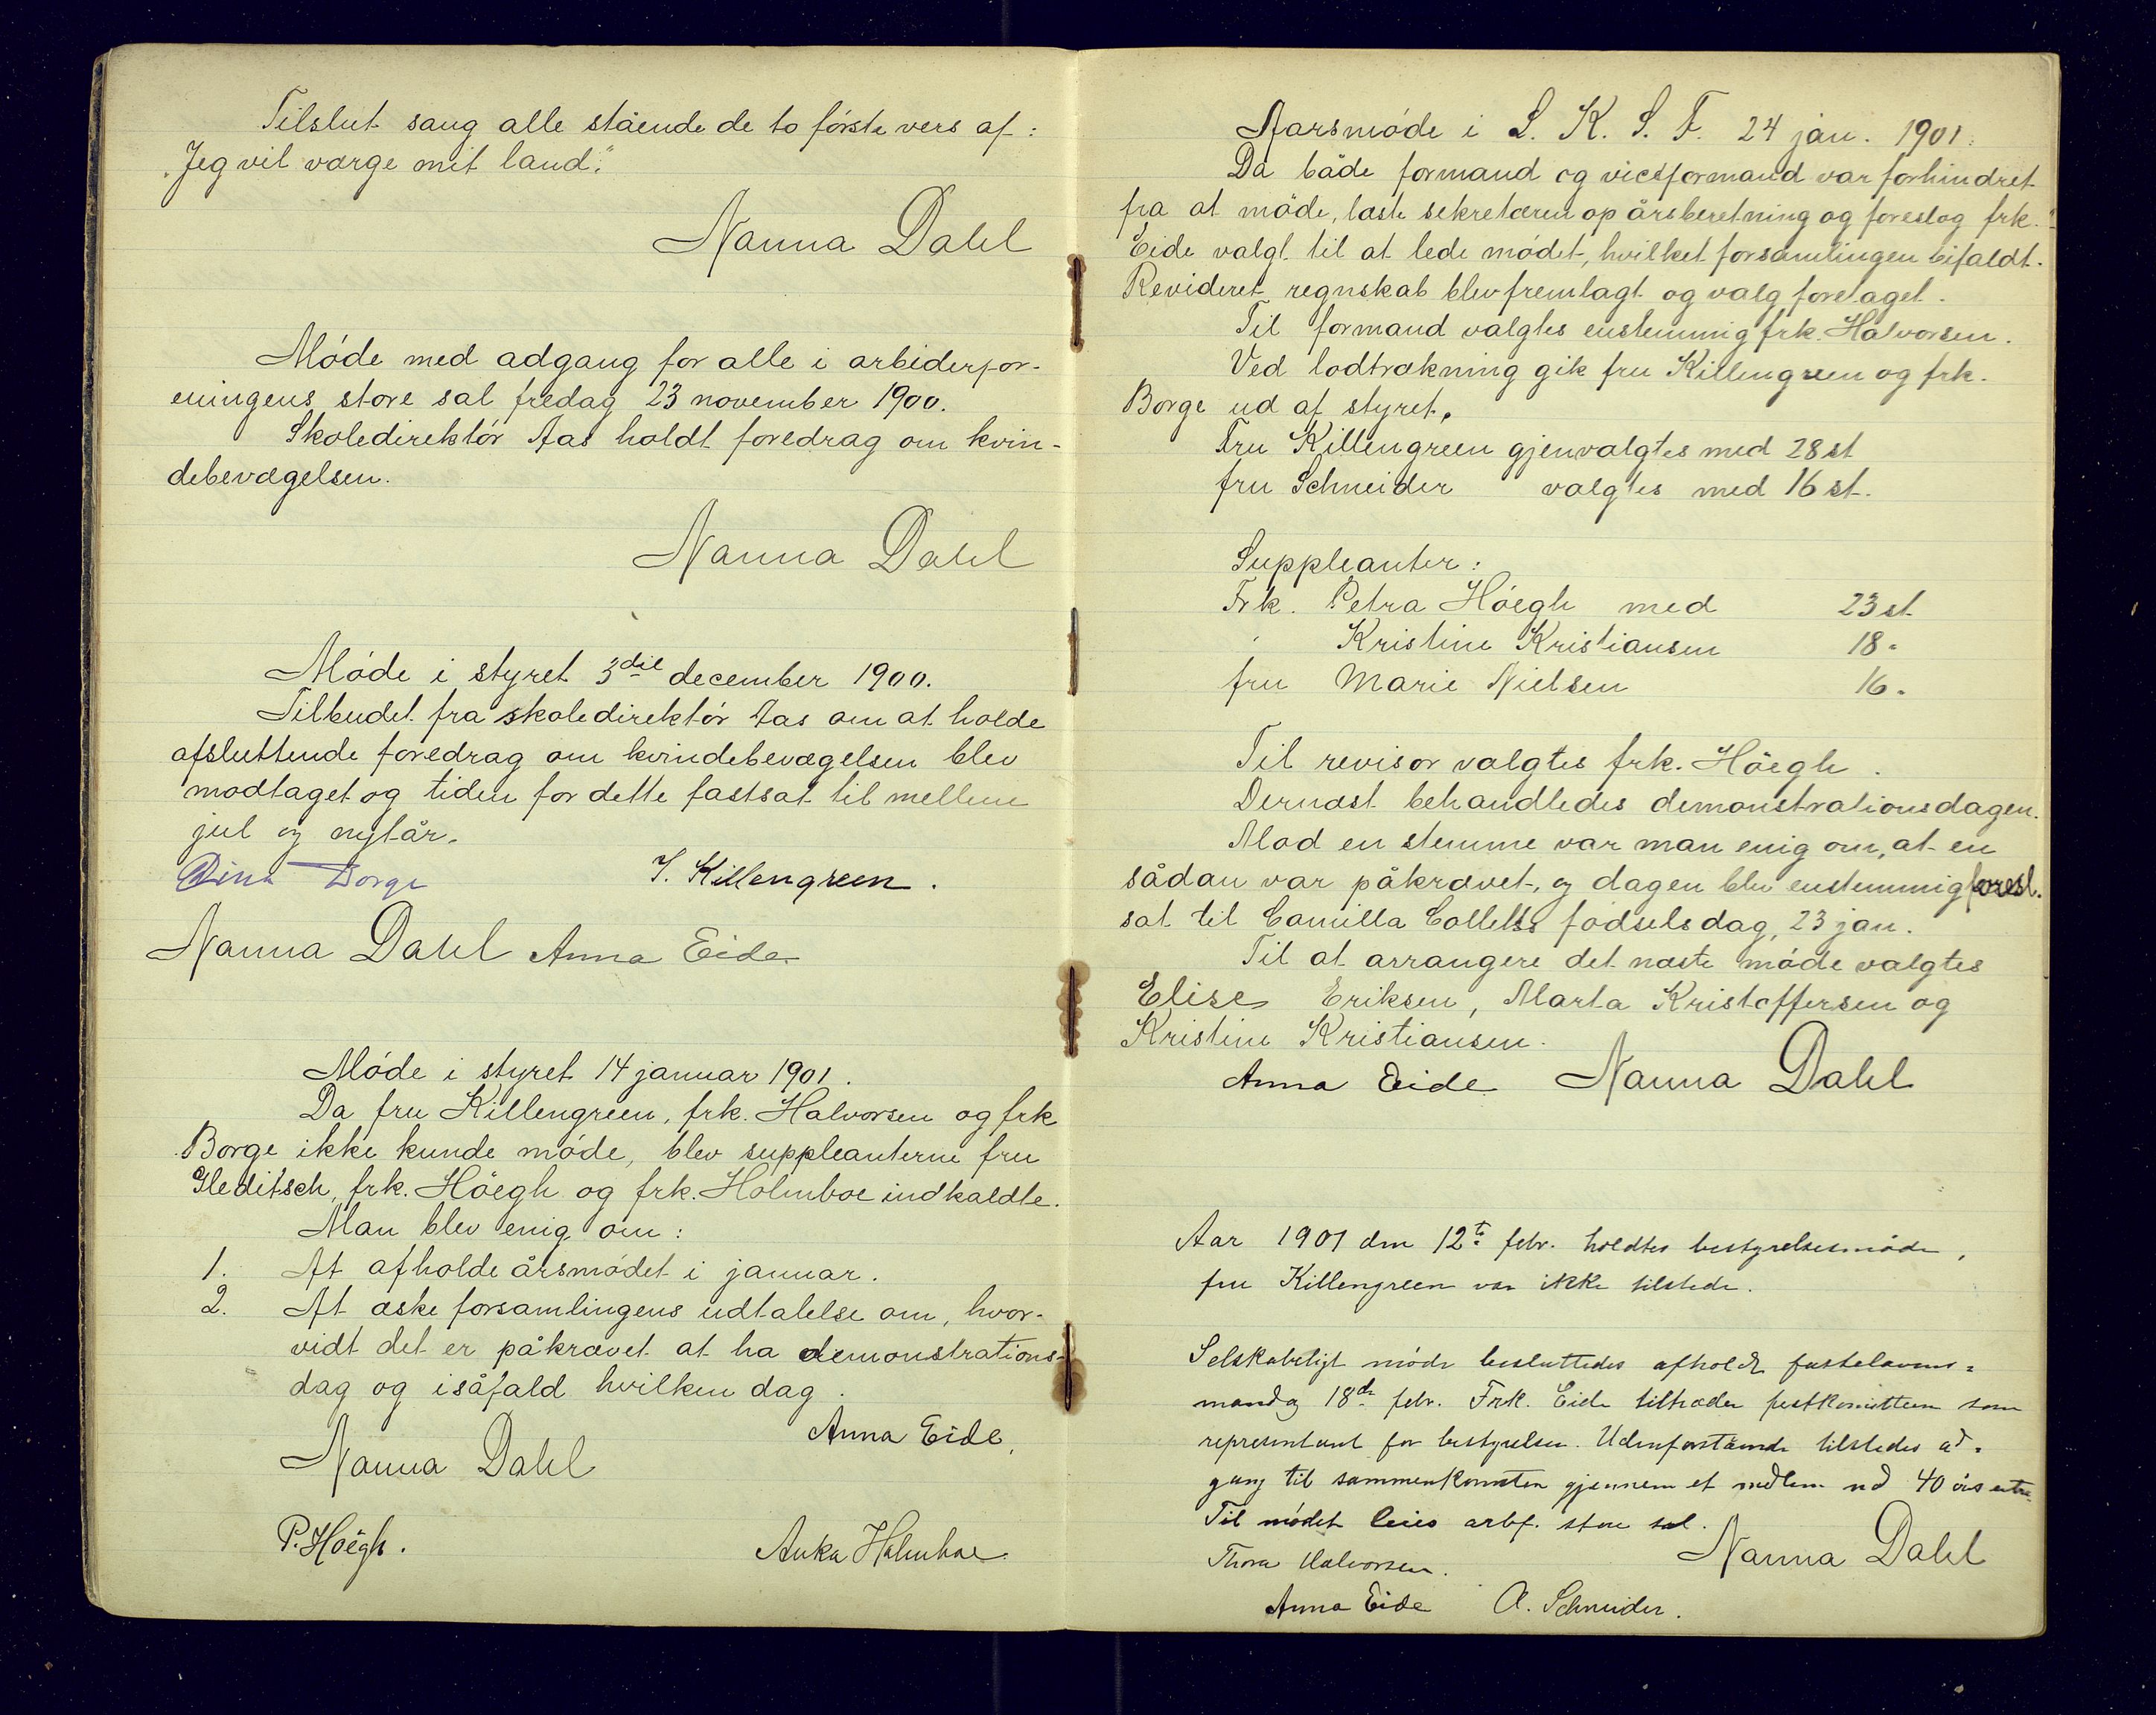 Tilslut sang alle stående de to første vers af:
"Jeg vil værge mit land."
Nanna Dahl
Møde med adgang for alle i arbiderfor-
eningens store sal fredag 23 november 1900.
Skoledirektør Aas holdt foredrag om kvin-
debevægelsen.
Nanna Dahl
Møde i styret 3die december 1900.
Tilbudet fra skoledirektør Aas om at holde
afsluttende foredrag om kvindebevægelsen blev
modtaget og tiden for dette fastsat til mellem
jul og nytår.
Dina Borge J. Killengreen.
Nanna Dahl Anna Eide
Møde i styret 14 januar 1901.
Da fru Killengreen, frk. Halvorsen og frk
Borge ikke kunde møde, blev suppleanterne fru
Gleditsch, frk. Höegh og frk. Holmboe indkaldte.
Man blev enig om:
1. At afholde årsmødet i januar.
2. At æske forsamlingens udtalelse om, hvor-
vidt det er påkrævet at ha demonstrations-
dag og isåfald hvilken dag.
Anna Eide.
Nanna Dahl
P. Höegh. Anka Holmboe.
Aarsmøde i L. K. S. F. 24 jan. 1901.
Da både formand og viceformand var forhindret
fra at møde, læste sekretæren op årsberetning og foreslog frk.
Eide valgt til at lede mødet, hvilket forsamlingen bifaldt.
Revideret regnskab blev fremlagt og valg foretaget.
Til formand valgtes enstemmig frk. Halvorsen.
Ved lodtrækning gik fru Killengreen og frk.
Borge ud af styret.
Fru Killengreen gjenvalgtes med 28 st
fru Schneider valgtes med 16 st.
Suppleanter:
Frk. Petra Höegh med 23 st
" Kristine Kristiansen 18 "
fru Marie Nielsen 16 "
Til revisor valgtes frk. Höegh.
Dernæst behandledes demonstrationsdagen.
Mod en stemme var man enig om, at en
sådan var påkrævet, og dagen blev enstemmig foresl.
sat til Camilla Colletts fødselsdag, 23 jan.
Til at arrangere det næste møde valgtes
Elise Eriksen, Marta Kristoffersen og
Kristine Kristiansen.
Anna Eide Nanna Dahl
Aar 1901 den 12te febr. holdtes bestyrelsesmøde,
fru Killengreen var ikke tilstede.
Selskabeligt møde besluttedes afholdt fastelavns=
mandag 18de febr. Frk. Eide tiltræder festkomitteen som
representant for bestyrelsen. Udenforstående tilstedes ad=
gang til sammenkomsten gjennem et medlem ved 40 øres entre.
Til mødet leies arbf. store sal.
Nanna Dahl
Thora Halvorsen.
Anna Eide A. Schneider.